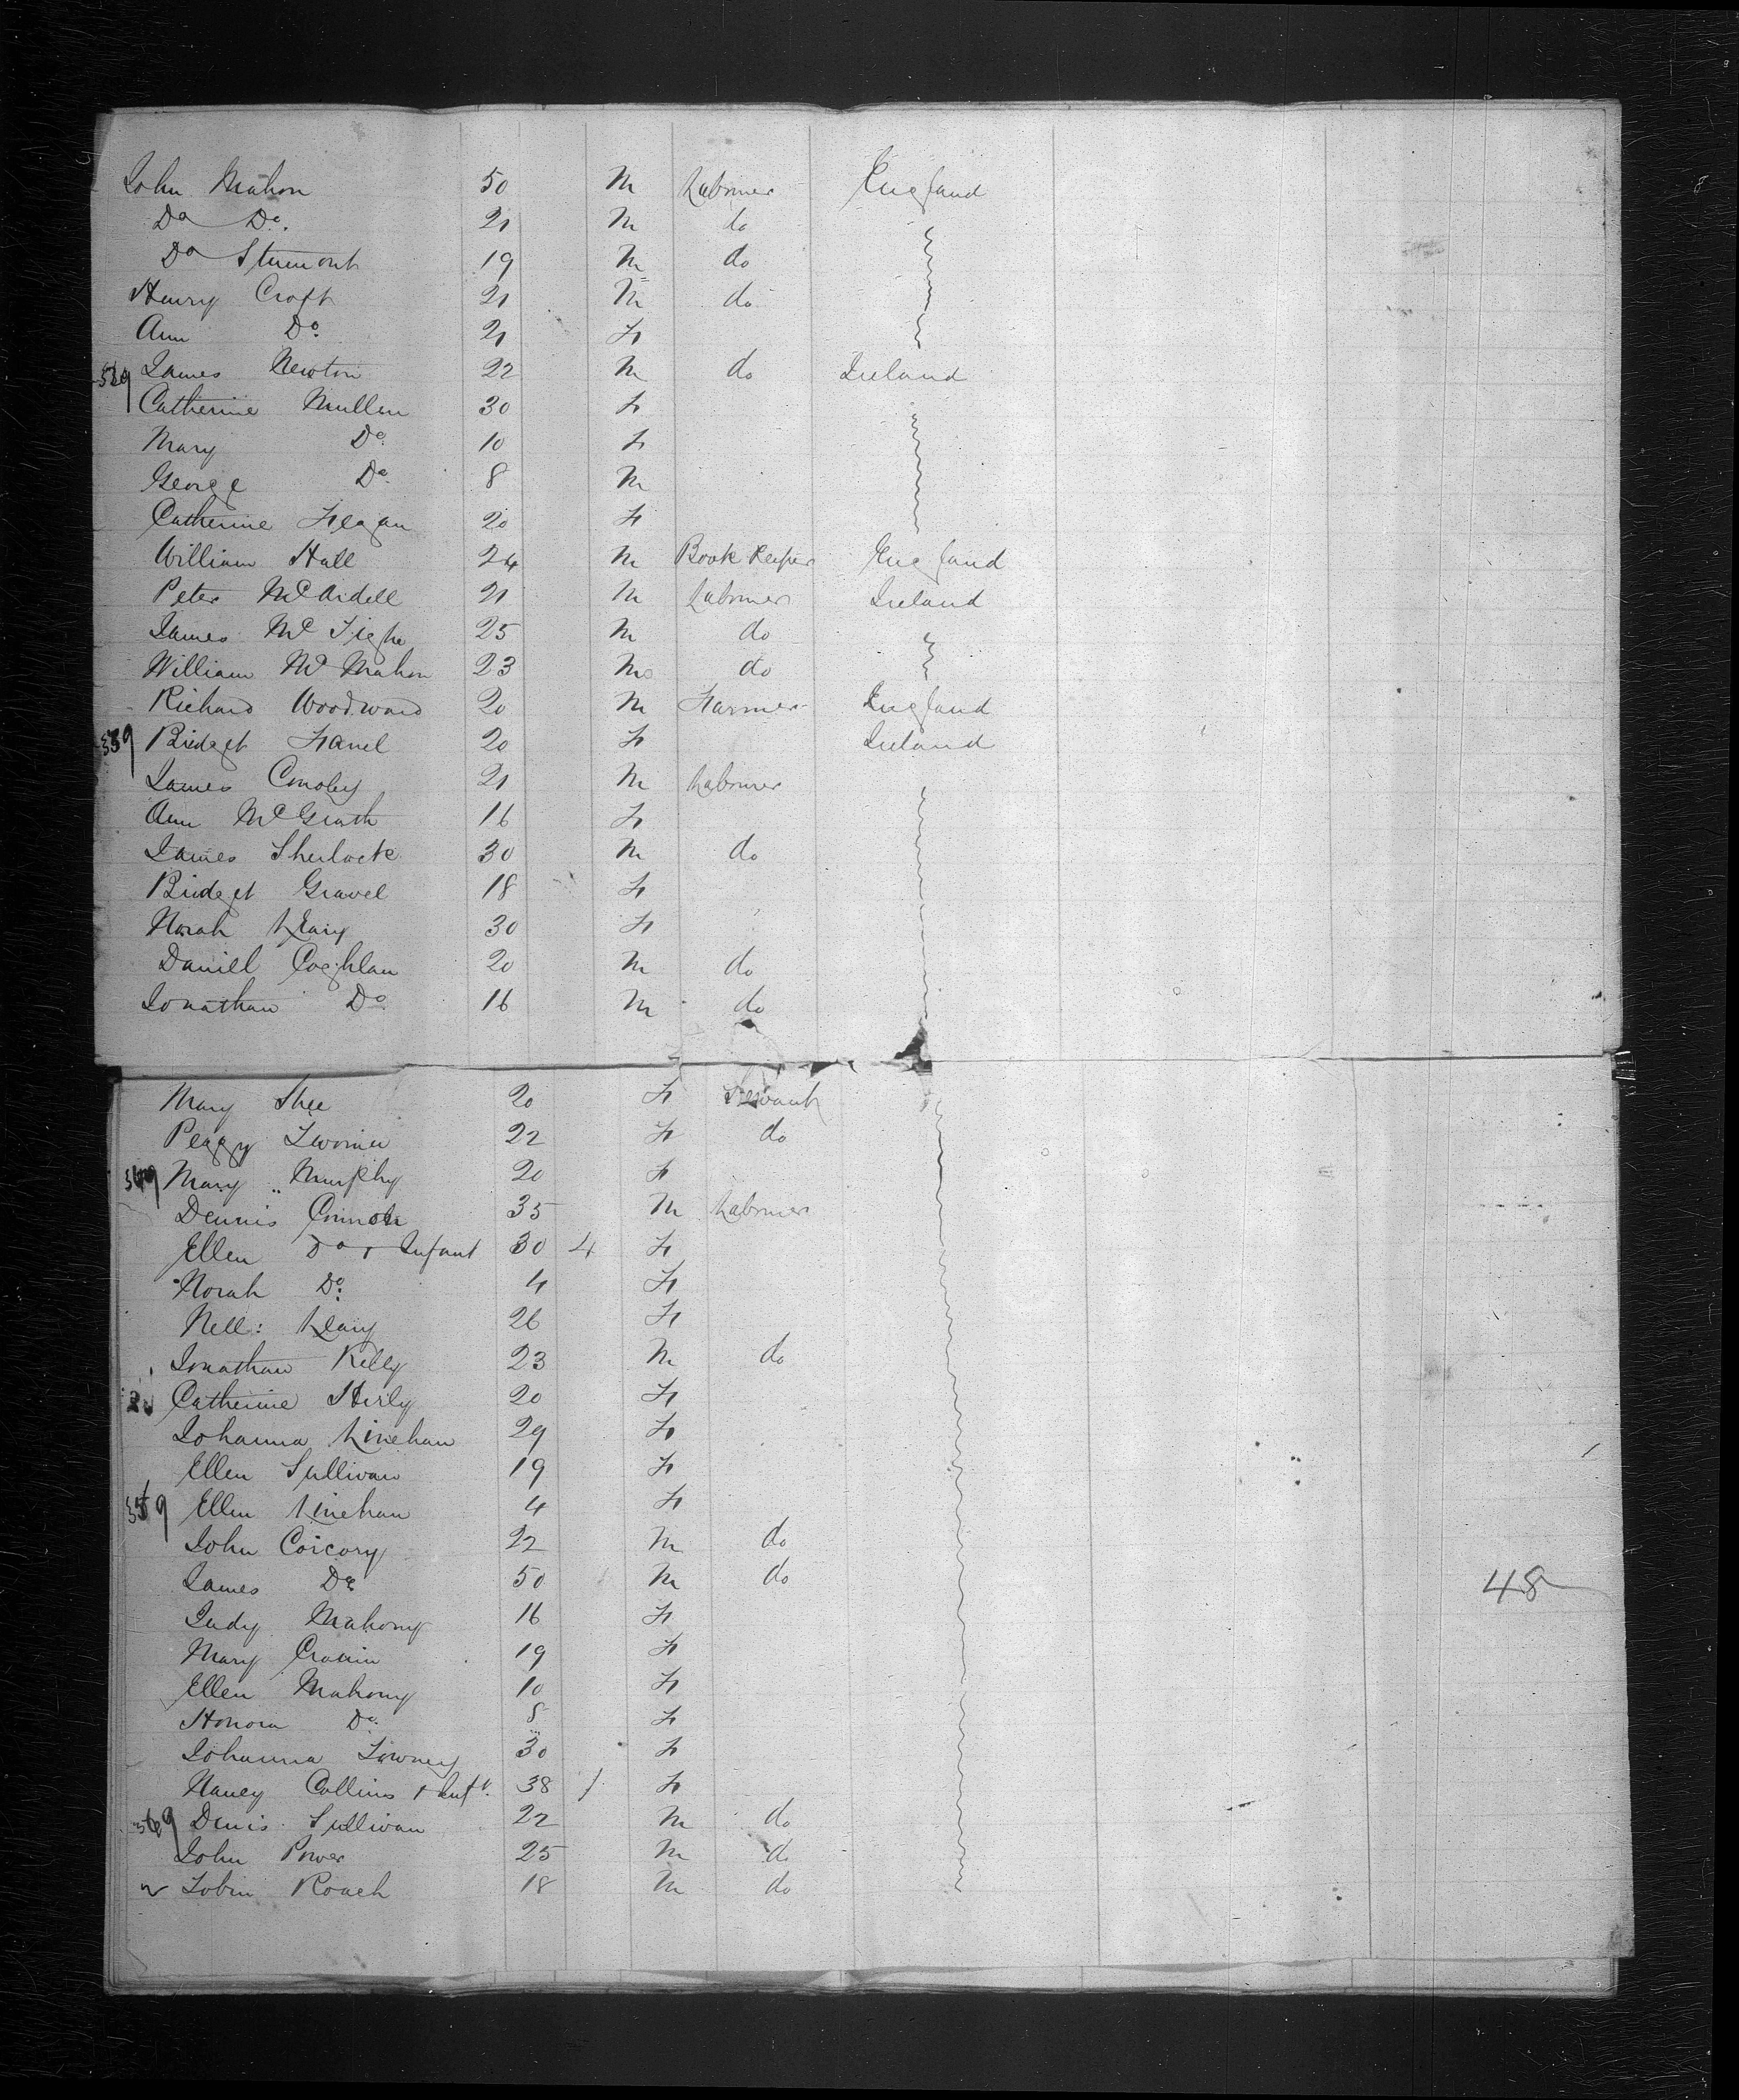 John Mahon 50 M Labourer England
Do Do. 21 M do
Do Sturmont 19 M do
Henry Croft 21 M do
Ann Do. 21 F
529 James Newton 22 M do Ireland
Catherine Mullen 30 F
Mary Do. 10 F
George Do. 8 M
Catherine Feagan 20 F
William Hall 24 M Book Keeper England
Peter McArdell 21 M Labourer Ireland
James McTighe 25 M do
William McMahon 23 M do
Richard Woodward 20 M Farmer England
539 Bridget Farrel 20 F Ireland
James Conoley 21 M Labourer
Ann McGrath 16 F
James Sherlock 30 M do
Bridget Gravel 18 F
Norah Leary 30 F
Daniel Coghlan 20 M do
Jonathan Do 16 M do
Mary Shee 20 F Servant
Peggy 22 F do
549 Mary Murphy 20 F
Dennis Connor 35 M Labourer
Ellen Do + Infant 30 4 F
Norah Do. 4 F
Nell: Leary 26 F
Jonathan Kelly 23 M do
Catherine Hurly 20 F
Johanna Linehan 29 F
Ellen Sullivan 19 F
559 Ellen Linehan 4 F
John Corcory 22 M do
James Do. 50 M do
48
Judy Mahony 16 F
Mary Cronin 19 F
Ellen Mahony 10 F
Honora Do. 8 F
Johanna Towney 30 F
Nancy Collins + Inft. 38 1 F
569 Denis Sullivan 22 M do
John Power 25 M do
Tobin Roach 18 M do